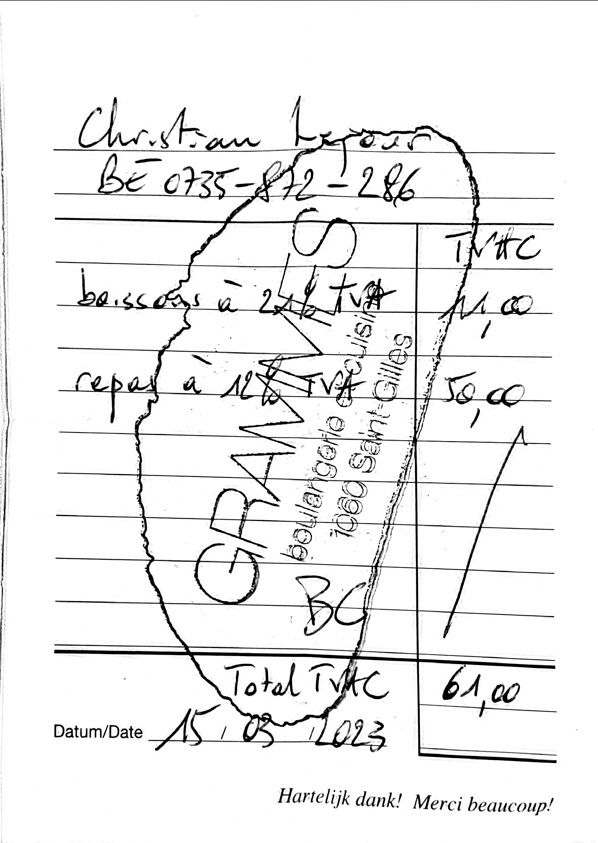 Christian Lejour
BE 0735-872-286
TVAC
boissons à 21% TVA 11,00
repas à 12% TVA 50,00
GRAMMES
boulangerie cuisine
1060 Saint-Gilles
BC
Total TVAC 61,00
Datum/Date 15/03/2023
Hartelijk dank! Merci beaucoup!